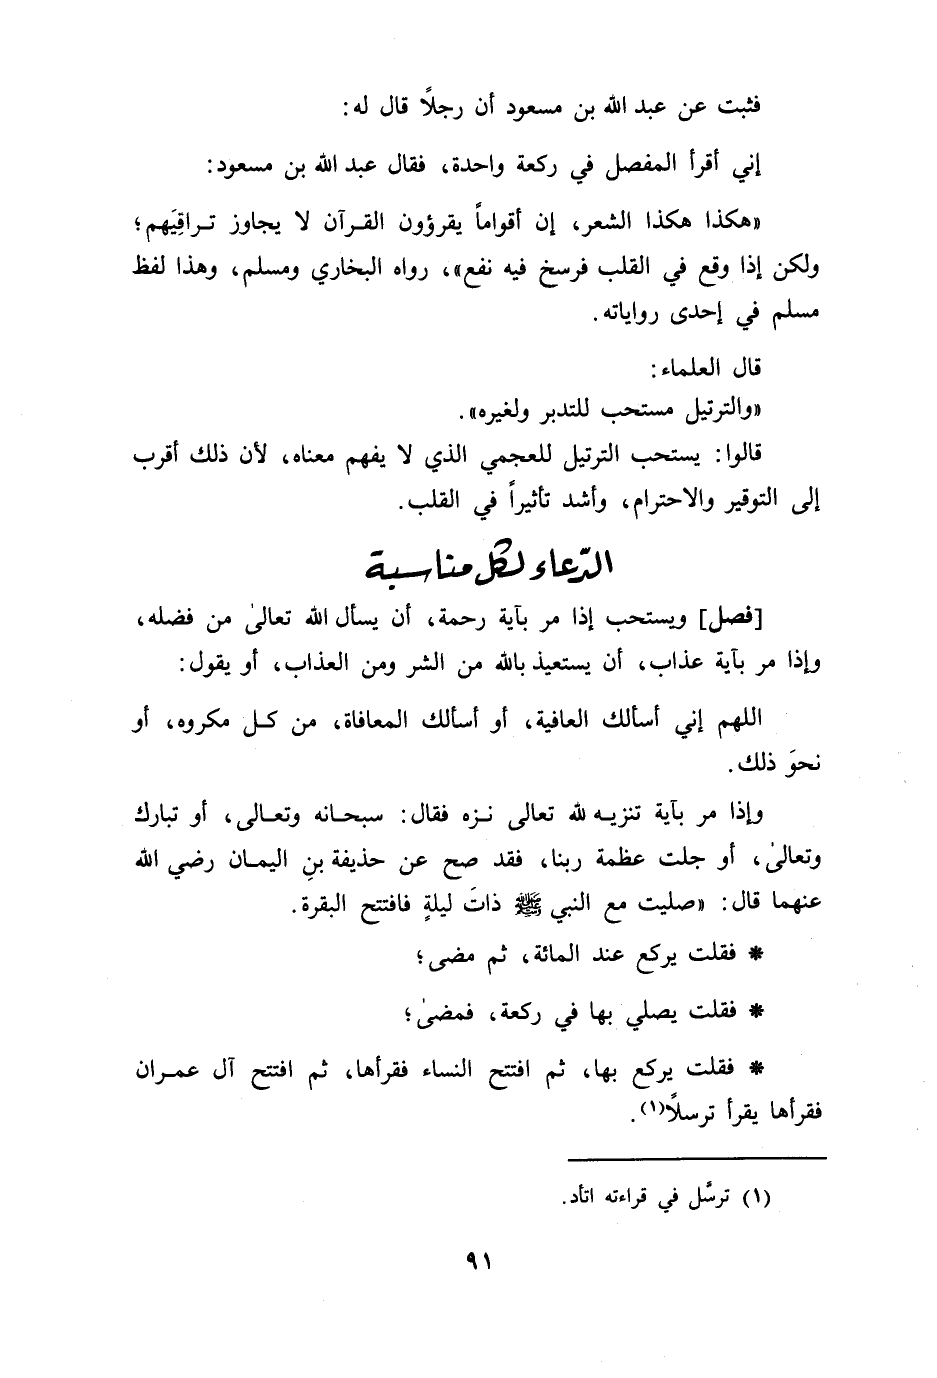 فثبت عن عبد الله بن مسعود أن رجلًا قال له:
إني أقرأ المفصل في ركعة واحدة، فقال عبد الله بن مسعود:
«هكذا هكذا الشعر، إن أقواماً يقرؤون القرآن لا يجاوز تراقِيَهم؛
ولكن إذا وقع في القلب فرسخ فيه نفع»، رواه البخاري ومسلم، وهذا لفظ
مسلم في إحدى رواياته.
قال العلماء:
«والترتيل مستحب للتدبر ولغيره».
قالوا: يستحب الترتيل للعجمي الذي لا يفهم معناه، لأن ذلك أقرب
إلى التوقير والاحترام، وأشد تأثيراً في القلب.
الدّعاء لكل مناسبة
[فصل] ويستحب إذا مر بآية رحمة، أن يسأل الله تعالىٰ من فضله،
وإذا مر بآية عذاب، أن يستعيذ بالله من الشر ومن العذاب، أو يقول:
اللهم إني أسألك العافية، أو أسألك المعافاة، من كل مكروه، أو
نحوَ ذلك.
وإذا مر بآية تنزيه لله تعالى نزه فقال: سبحانه وتعالى، أو تبارك
وتعالىٰ، أو جلت عظمة ربنا، فقد صح عن حذيفة بنِ اليمان رضي الله
عنهما قال: «صليت مع النبي ﷺ ذاتَ ليلةٍ فافتتح البقرة.
* فقلت يركع عند المائة، ثم مضى؛
* فقلت يصلي بها في ركعة، فمضىٰ؛
* فقلت يركع بها، ثم افتتح النساء فقرأها، ثم افتتح آل عمران
فقرأها يقرأ ترسلًا(١).
(١) ترسَّل في قراءته اتأد.
٩١